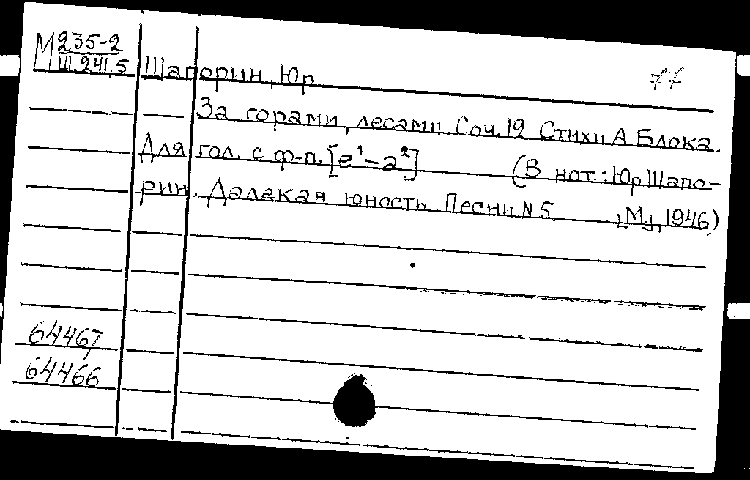 М 235-2
Ш 241,5 Шапорин, Юр.
За горами, лесами. Соч. 12 Стихи А Блока.
Для гол. с ф-п. [e¹-a²] (В нот: Юр Шапо-
рин. Далекая юность Песни N 5 , М., 1946)
64467
64466